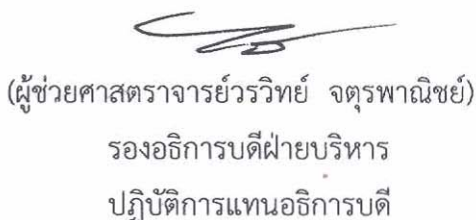 (ผู้ช่วยศาสตราจารย์วรวิทย์ จตุรพาณิชย์)
รองอธิการบดีฝ่ายบริหาร
ปฏิบัติการแทนอธิการบดี